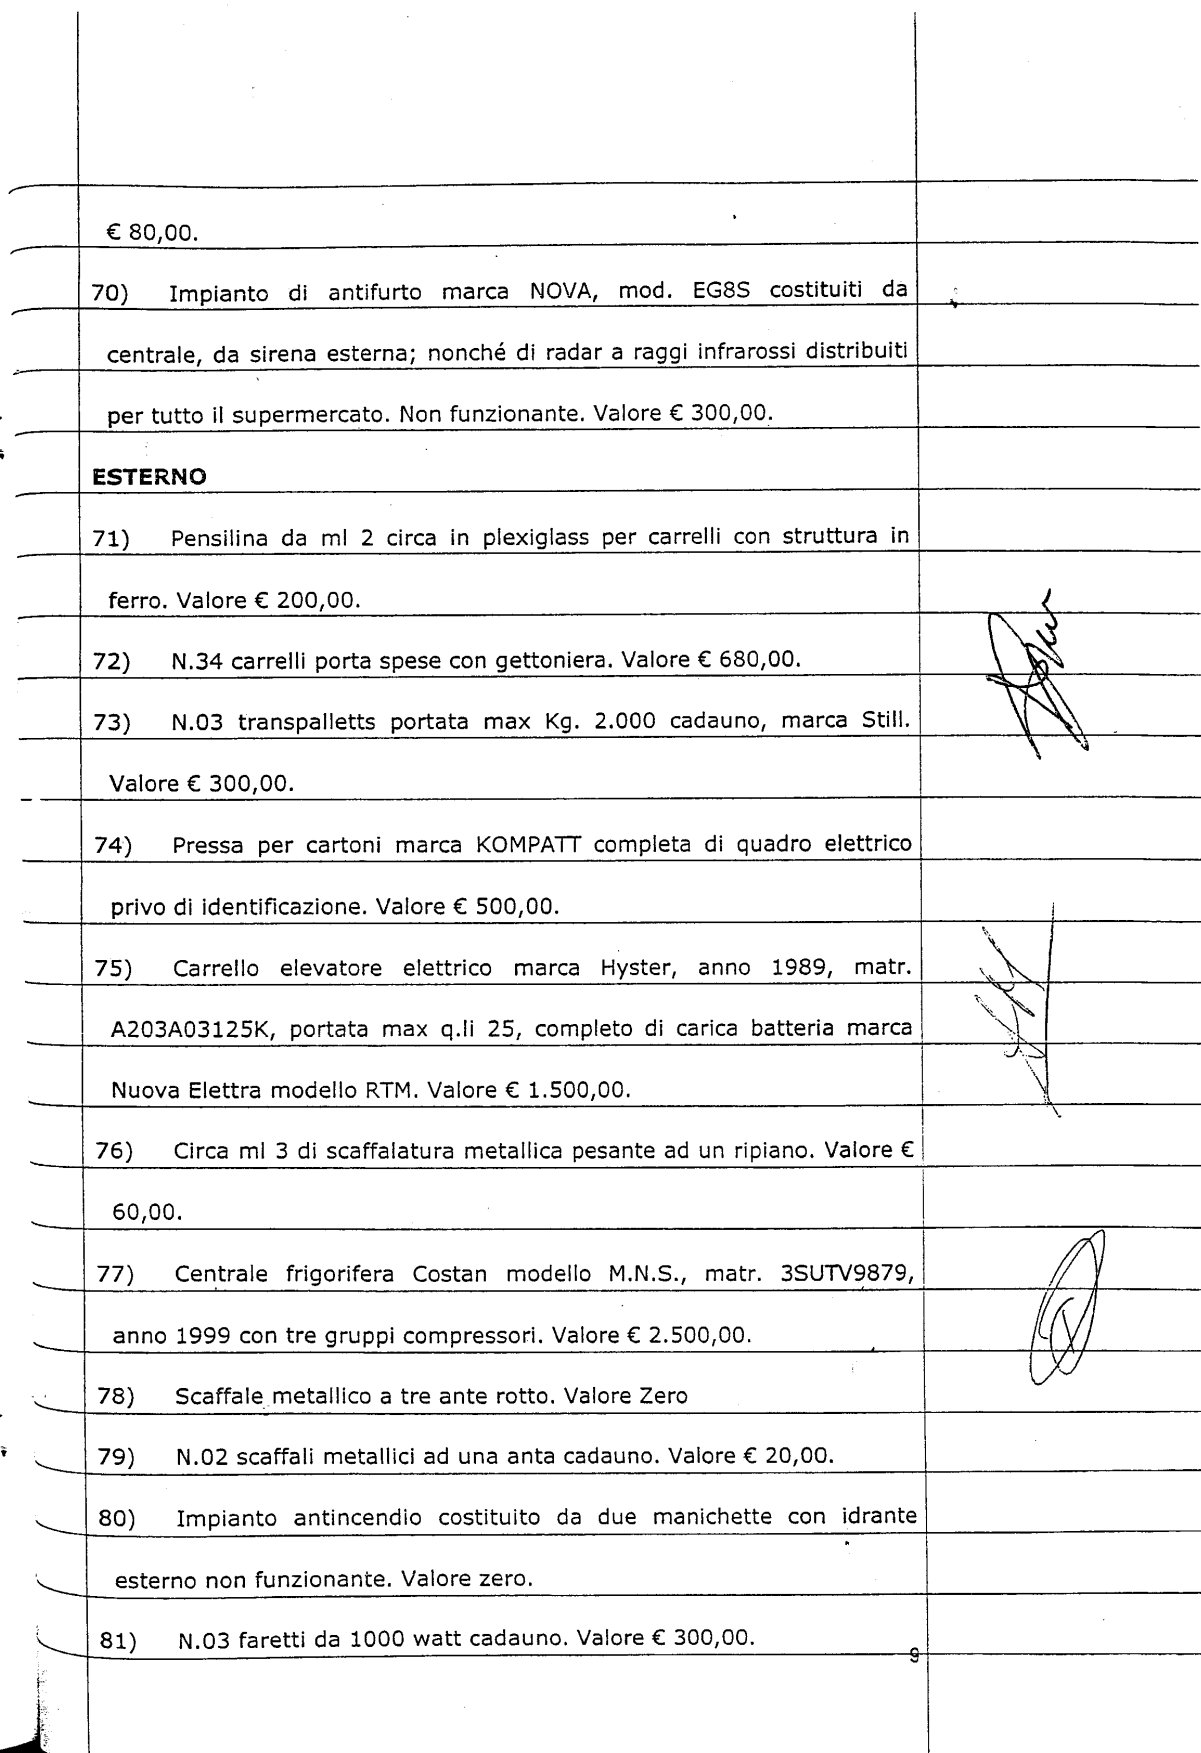 € 80,00.
70) Impianto di antifurto marca NOVA, mod. EG8S costituiti da
centrale, da sirena esterna; nonché di radar a raggi infrarossi distribuiti
per tutto il supermercato. Non funzionante. Valore € 300,00.
ESTERNO
71) Pensilina da ml 2 circa in plexiglass per carrelli con struttura in
ferro. Valore € 200,00.
72) N.34 carrelli porta spese con gettoniera. Valore € 680,00.
73) N.03 transpalletts portata max Kg. 2.000 cadauno, marca Still.
Valore € 300,00.
74) Pressa per cartoni marca KOMPATT completa di quadro elettrico
privo di identificazione. Valore € 500,00.
75) Carrello elevatore elettrico marca Hyster, anno 1989, matr.
A203A03125K, portata max q.li 25, completo di carica batteria marca
Nuova Elettra modello RTM. Valore € 1.500,00.
76) Circa ml 3 di scaffalatura metallica pesante ad un ripiano. Valore €
60,00.
77) Centrale frigorifera Costan modello M.N.S., matr. 3SUTV9879,
anno 1999 con tre gruppi compressori. Valore € 2.500,00.
78) Scaffale metallico a tre ante rotto. Valore Zero
79) N.02 scaffali metallici ad una anta cadauno. Valore € 20,00.
80) Impianto antincendio costituito da due manichette con idrante
esterno non funzionante. Valore zero.
81) N.03 faretti da 1000 watt cadauno. Valore € 300,00.
9